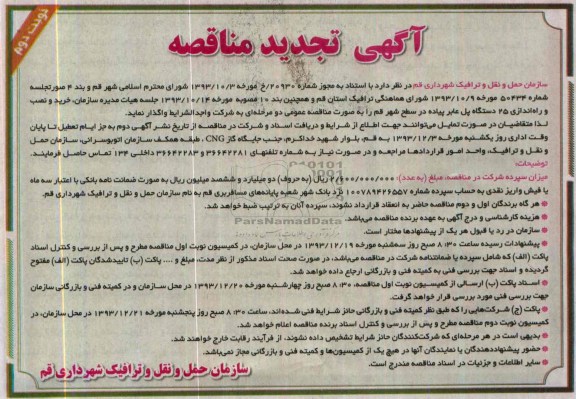 نوبت دوم
آگهی تجدید مناقصه
سازمان حمل و نقل و ترافیک شهرداری قم در نظر دارد با استناد به مجوز شماره ۲۰۹۳۰/خ مورخه ۱۳۹۳/۱۰/۳ شورای محترم اسلامی شهر قم و بند ۴ صورتجلسه
شماره ۵۰۴۳۴ مورخه ۱۳۹۳/۱۰/۹ شورای هماهنگی ترافیک استان قم و همچنین بند ۱۰ مصوبه مورخه ۱۳۹۳/۱۰/۱۴ جلسه هیات مدیره سازمان، خرید و نصب
و راه‌اندازی ۲۵ دستگاه پل عابر پیاده در سطح شهر قم را به صورت مناقصه عمومی دو مرحله‌ای به شرکت واجدالشرایط واگذار نماید.
لذا متقاضیان در صورت تمایل می‌توانند جهت اطلاع از شرایط و دریافت اسناد و شرکت در مناقصه از تاریخ نشر آگهی دوم به جز ایام تعطیل تا پایان
وقت اداری روز یکشنبه مورخه ۱۳۹۳/۱۲/۳ به قم، بلوار شهید خداکرم، جنب جایگاه گاز CNG، طبقه همکف سازمان اتوبوسرانی، سازمان حمل
و نقل و ترافیک، واحد امور قراردادها مراجعه و در صورت نیاز به شماره تلفنهای ۳۶۶۴۲۲۸۱ و ۳۶۶۴۲۲۸۳ داخلی ۱۳۴ تماس حاصل فرمایند.
توضیحات:
میزان سپرده شرکت در مناقصه، مبلغ (به عدد): ۲/۶۰۰/۰۰۰/۰۰۰ ریال (به حروف) دو میلیارد و ششصد میلیون ریال به صورت ضمانت نامه بانکی با اعتبار سه ماه
یا فیش واریز نقدی به حساب سپرده شماره ۱۰۰۷۸۹۴۲۶۵۵۷ نزد بانک شهر شعبه پایانه‌های مسافربری قم به نام سازمان حمل و نقل و ترافیک شهرداری قم.
هر گاه برندگان اول و دوم مناقصه حاضر به انعقاد قرارداد نشوند، سپرده آنان به ترتیب ضبط خواهد شد.
هزینه کارشناسی و درج آگهی به عهده برنده مناقصه می‌باشد.
سازمان در رد یا قبول هر یک از پیشنهادها مختار است.
پیشنهادات رسیده ساعت ۸:۳۰ صبح روز سه‌شنبه مورخه ۱۳۹۳/۱۲/۱۹ در محل سازمان، در کمیسیون نوبت اول مناقصه مطرح و پس از بررسی و کنترل اسناد
پاکت (الف) که شامل سپرده یا ضمانتنامه شرکت در مناقصه می‌باشد، در صورت صحت اسناد مذکور از نظر مدت، مبلغ و .... پاکت (ب) تاییدشدگان پاکت (الف) مفتوح
گردیده و اسناد جهت بررسی فنی به کمیته فنی و بازرگانی ارجاع داده خواهد شد.
اسناد پاکت (ب) ارسالی از کمیسیون نوبت اول مناقصه، ۸:۳۰ صبح روز چهارشنبه مورخه ۱۳۹۳/۱۲/۲۰ در محل سازمان و در کمیته فنی و بازرگانی سازمان
جهت بررسی فنی مورد بررسی قرار خواهد گرفت.
پاکت (ج) شرکت‌هایی را که طبق نظر کمیته فنی و بازرگانی حائز شرایط فنی شده‌اند، ساعت ۸:۳۰ صبح روز پنجشنبه مورخه ۱۳۹۳/۱۲/۲۱ در محل سازمان، در
کمیسیون نوبت دوم مناقصه مطرح و پس از بررسی و کنترل اسناد برنده مناقصه اعلام خواهد شد.
بدیهی است در هر مرحله‌ای که شرکت‌کنندگان حائز شرایط تشخیص داده نشوند، از فرآیند رقابت خارج خواهند شد.
حضور پیشنهاددهندگان یا نمایندگان آنها در هیچ یک از کمیسیون‌ها و کمیته فنی و بازرگانی مجاز نمی‌باشد.
سایر اطلاعات و جزئیات در اسناد مناقصه مندرج است.
سازمان حمل و نقل و ترافیک شهرداری قم
ParsNamadData